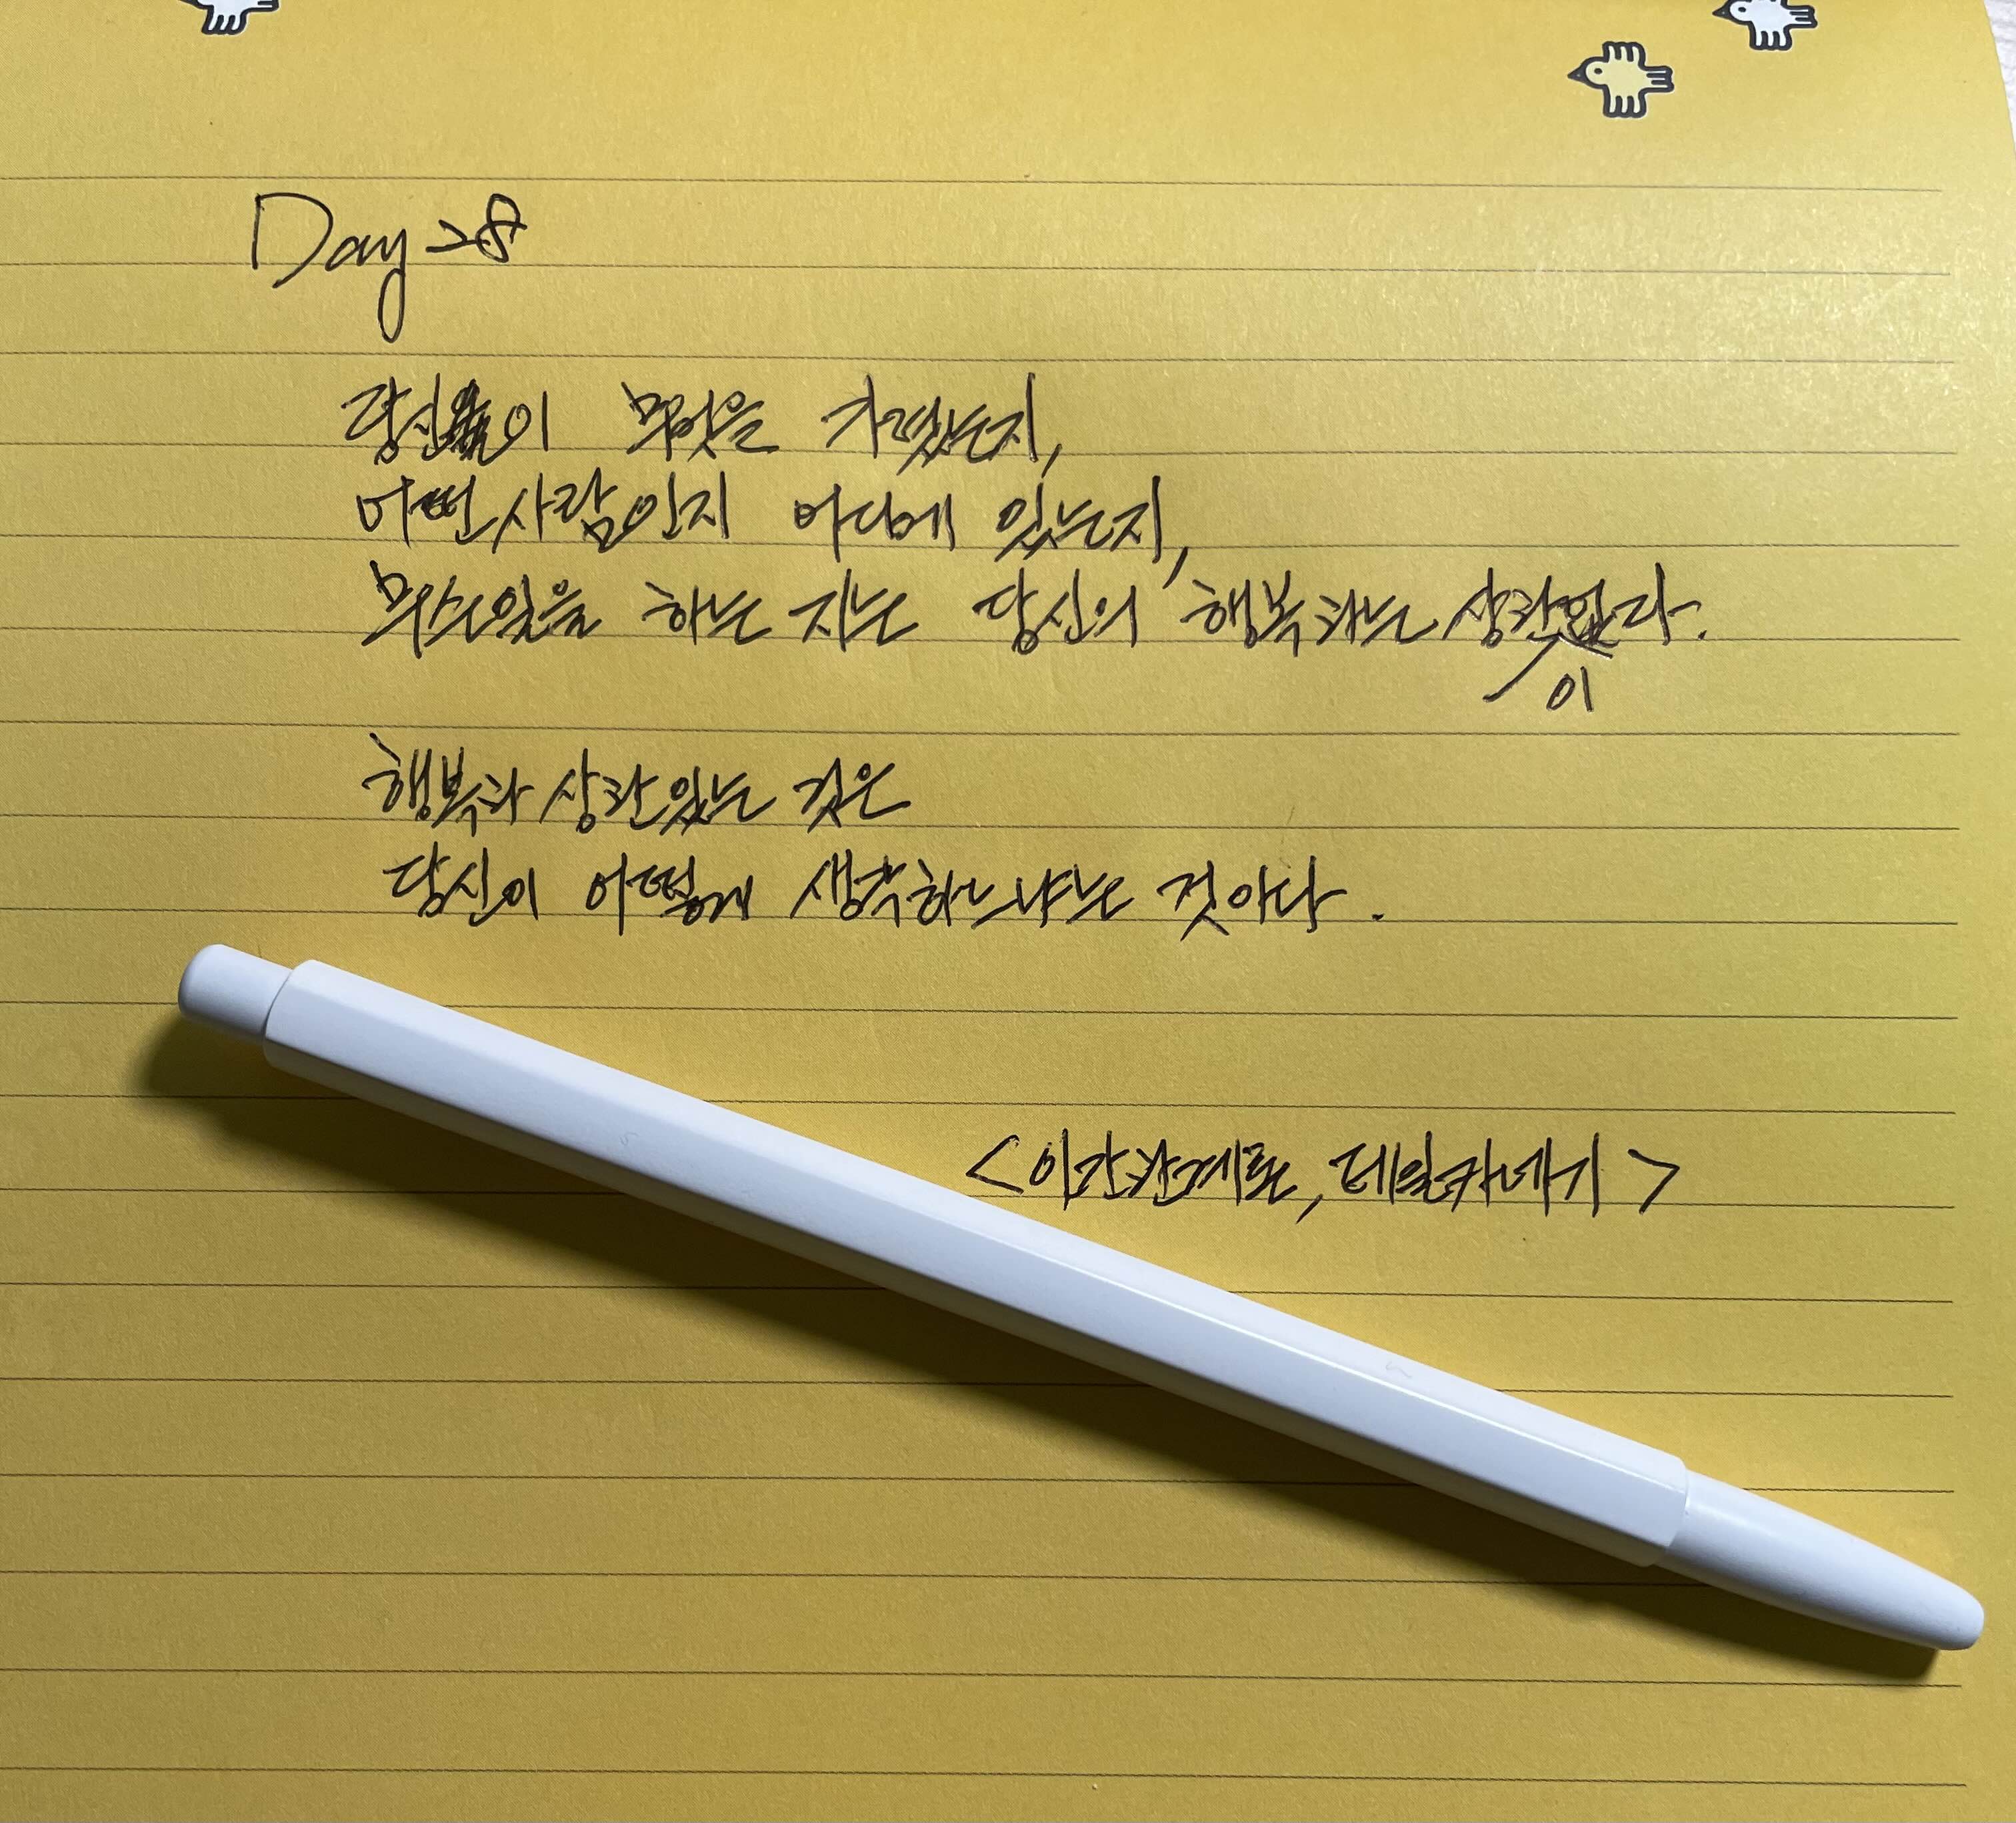 Day 28
당신이 무엇을 가졌는지,
어떤 사람인지 어디에 있는지,
무슨일을 하는 지는 당신의 행복과는 상관없다.
이
행복과 상관있는 것은
당신이 어떻게 생각하느냐는 것이다.
<인간관계론, 데일카네기>